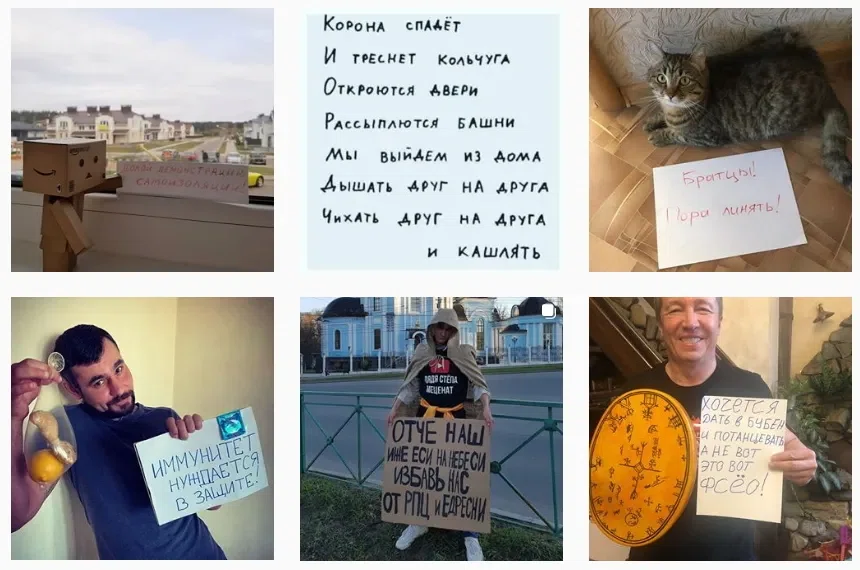 САМОИЗОЛЯЦИИ!
Корона спадёт
И треснет кольчуга
Откроются двери
Рассыплются башни
Мы выйдем из дома
Дышать друг на друга
Чихать друг на друга
и кашлять
Братцы!
Пора линять!
ИММУНИТЕТ
НУЖДАЕТСЯ
В ЗАЩИТЕ!
ДЯДЯ СТЁПА
МЕЦЕНАТ
ОТЧЕ НАШ
ИЖЕ ЕСИ НА НЕБЕСИ
ИЗБАВЬ НАС
ОТ РПЦ И ЕДРЕСНИ
ХОЧЕТСЯ
ДАТЬ В БУБЕН
И ПОТАНЦЕВАТЬ
А НЕ ВОТ
ЭТО ВОТ
ФСЁО!